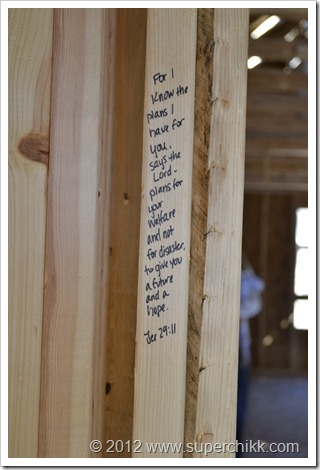 For I
know the
plans I
have for
you,
says the
Lord -
plans for
your
welfare
and not
for disaster,
to give you
a future
and a
hope.
Jer 29:11
© 2012 www.superchikk.com